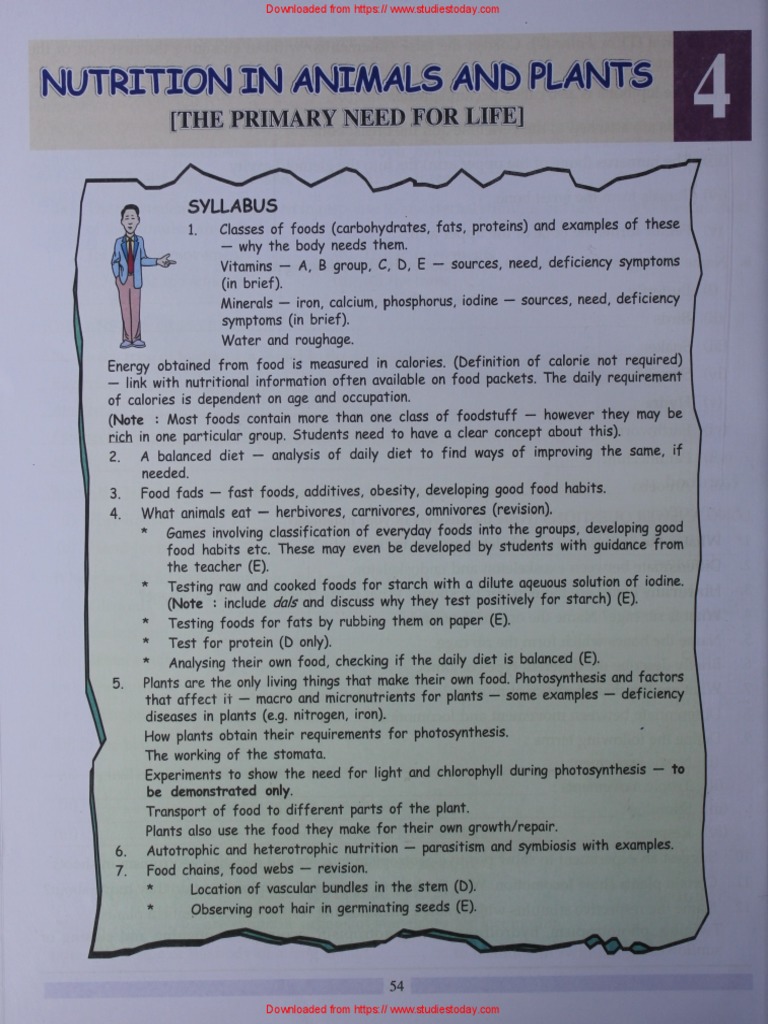 Downloaded from https:// www.studiestoday.com
NUTRITION IN ANIMALS AND PLANTS
4
[THE PRIMARY NEED FOR LIFE]
SYLLABUS
1. Classes of foods (carbohydrates, fats, proteins) and examples of these
— why the body needs them.
Vitamins — A, B group, C, D, E — sources, need, deficiency symptoms
(in brief).
Minerals — iron, calcium, phosphorus, iodine — sources, need, deficiency
symptoms (in brief).
Water and roughage.
Energy obtained from food is measured in calories. (Definition of calorie not required)
— link with nutritional information often available on food packets. The daily requirement
of calories is dependent on age and occupation.
(Note : Most foods contain more than one class of foodstuff — however they may be
rich in one particular group. Students need to have a clear concept about this).
2. A balanced diet — analysis of daily diet to find ways of improving the same, if
needed.
3. Food fads — fast foods, additives, obesity, developing good food habits.
4. What animals eat — herbivores, carnivores, omnivores (revision).
* Games involving classification of everyday foods into the groups, developing good
food habits etc. These may even be developed by students with guidance from
the teacher (E).
* Testing raw and cooked foods for starch with a dilute aqeuous solution of iodine.
(Note : include dals and discuss why they test positively for starch) (E).
* Testing foods for fats by rubbing them on paper (E).
* Test for protein (D only).
* Analysing their own food, checking if the daily diet is balanced (E).
5. Plants are the only living things that make their own food. Photosynthesis and factors
that affect it — macro and micronutrients for plants — some examples — deficiency
diseases in plants (e.g. nitrogen, iron).
How plants obtain their requirements for photosynthesis.
The working of the stomata.
Experiments to show the need for light and chlorophyll during photosynthesis — to
be demonstrated only.
Transport of food to different parts of the plant.
Plants also use the food they make for their own growth/repair.
6. Autotrophic and heterotrophic nutrition — parasitism and symbiosis with examples.
7. Food chains, food webs — revision.
* Location of vascular bundles in the stem (D).
* Observing root hair in germinating seeds (E).
54
Downloaded from https:// www.studiestoday.com